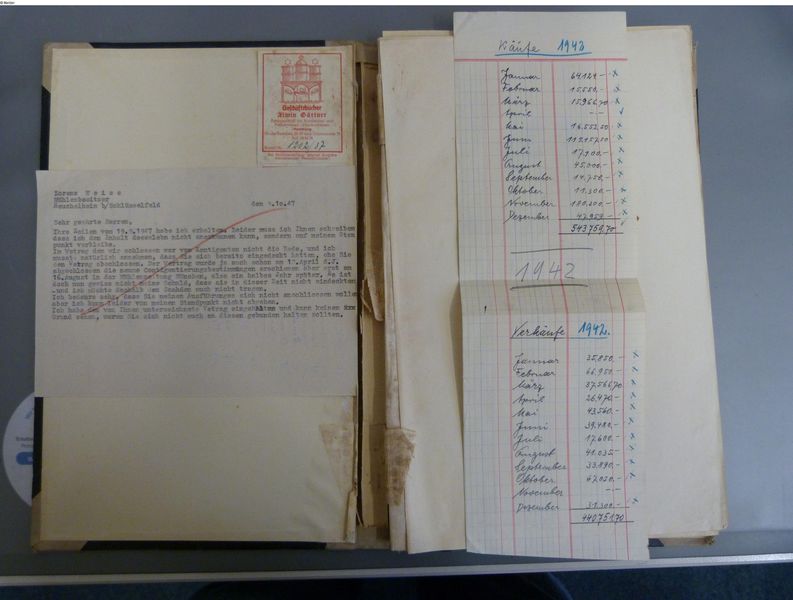 Geschäftsbücher
Alwin Gärtner
1202/37
Lorenz Weiss
Mühlenbesitzer
b/Schlüsselfeld
den 4.10.47
Sehr geehrte Herren,
Ihre Zeilen vom 19.9.1947 habe ich erhalten, leider muss ich Ihnen schreiben
dass ich den Inhalt desselben nicht anerkennen kann, sondern auf meinem Stan
punkt verbleibe.
Im Vertrag den wir schlossen war von Kontigenten nicht die Rede, und ich
musst natürlich annehmen, dass Sie sich bereits eingedeckt hatten, ehe Sie
den Vetrag abschlossen. Der Vertrag wurde ja auch schon am
abgeschlossen die neuen Contigentierungsbestimmungen erschienen aber erst am
16.August in der Mühlenzeitung München, also ein halbes Jahr später. Es ist
doch nun gewiss nicht meine Schuld, dass Sie in dieser Zeit nicht eindeckten
und ich möchte deshalb den Schaden auch nicht tragen.
Ich bedaure sehr, dass Sie meinen Ausführungen sich nicht anschliessen wollen
aber ich kann leider von meinem Standpunkt nicht abgehen.
Ich habe den von Ihnen unterzeichneten Vetrag eingehalten und kann keinen
Grund sehen, warum Sie sich nicht auch an diesen gebunden halten sollten.
Käufe 1942
Januar 64.121.- x
Februar 15.550.- x
März 15.966,70 x
April - -
Mai 16.552,50 x
Juni x
Juli 17.900.- x
August 45.000.- x
September 14.750.- x
Oktober 11.300.- x
November 180.600.- x
Dezember 42.959.- x
543.756,70
1942
Verkäufe 1942.
Januar 35.850.- x
Februar 66.950.- x
März 37.566,70 x
April 26.470.- x
Mai 43.560.- x
Juni 39.480.- x
Juli 17.600.- x
August 40.035.- x
September 33.890.- x
Oktober 47.020.- x
November - -
Dezember 51.300.- x
440751.70